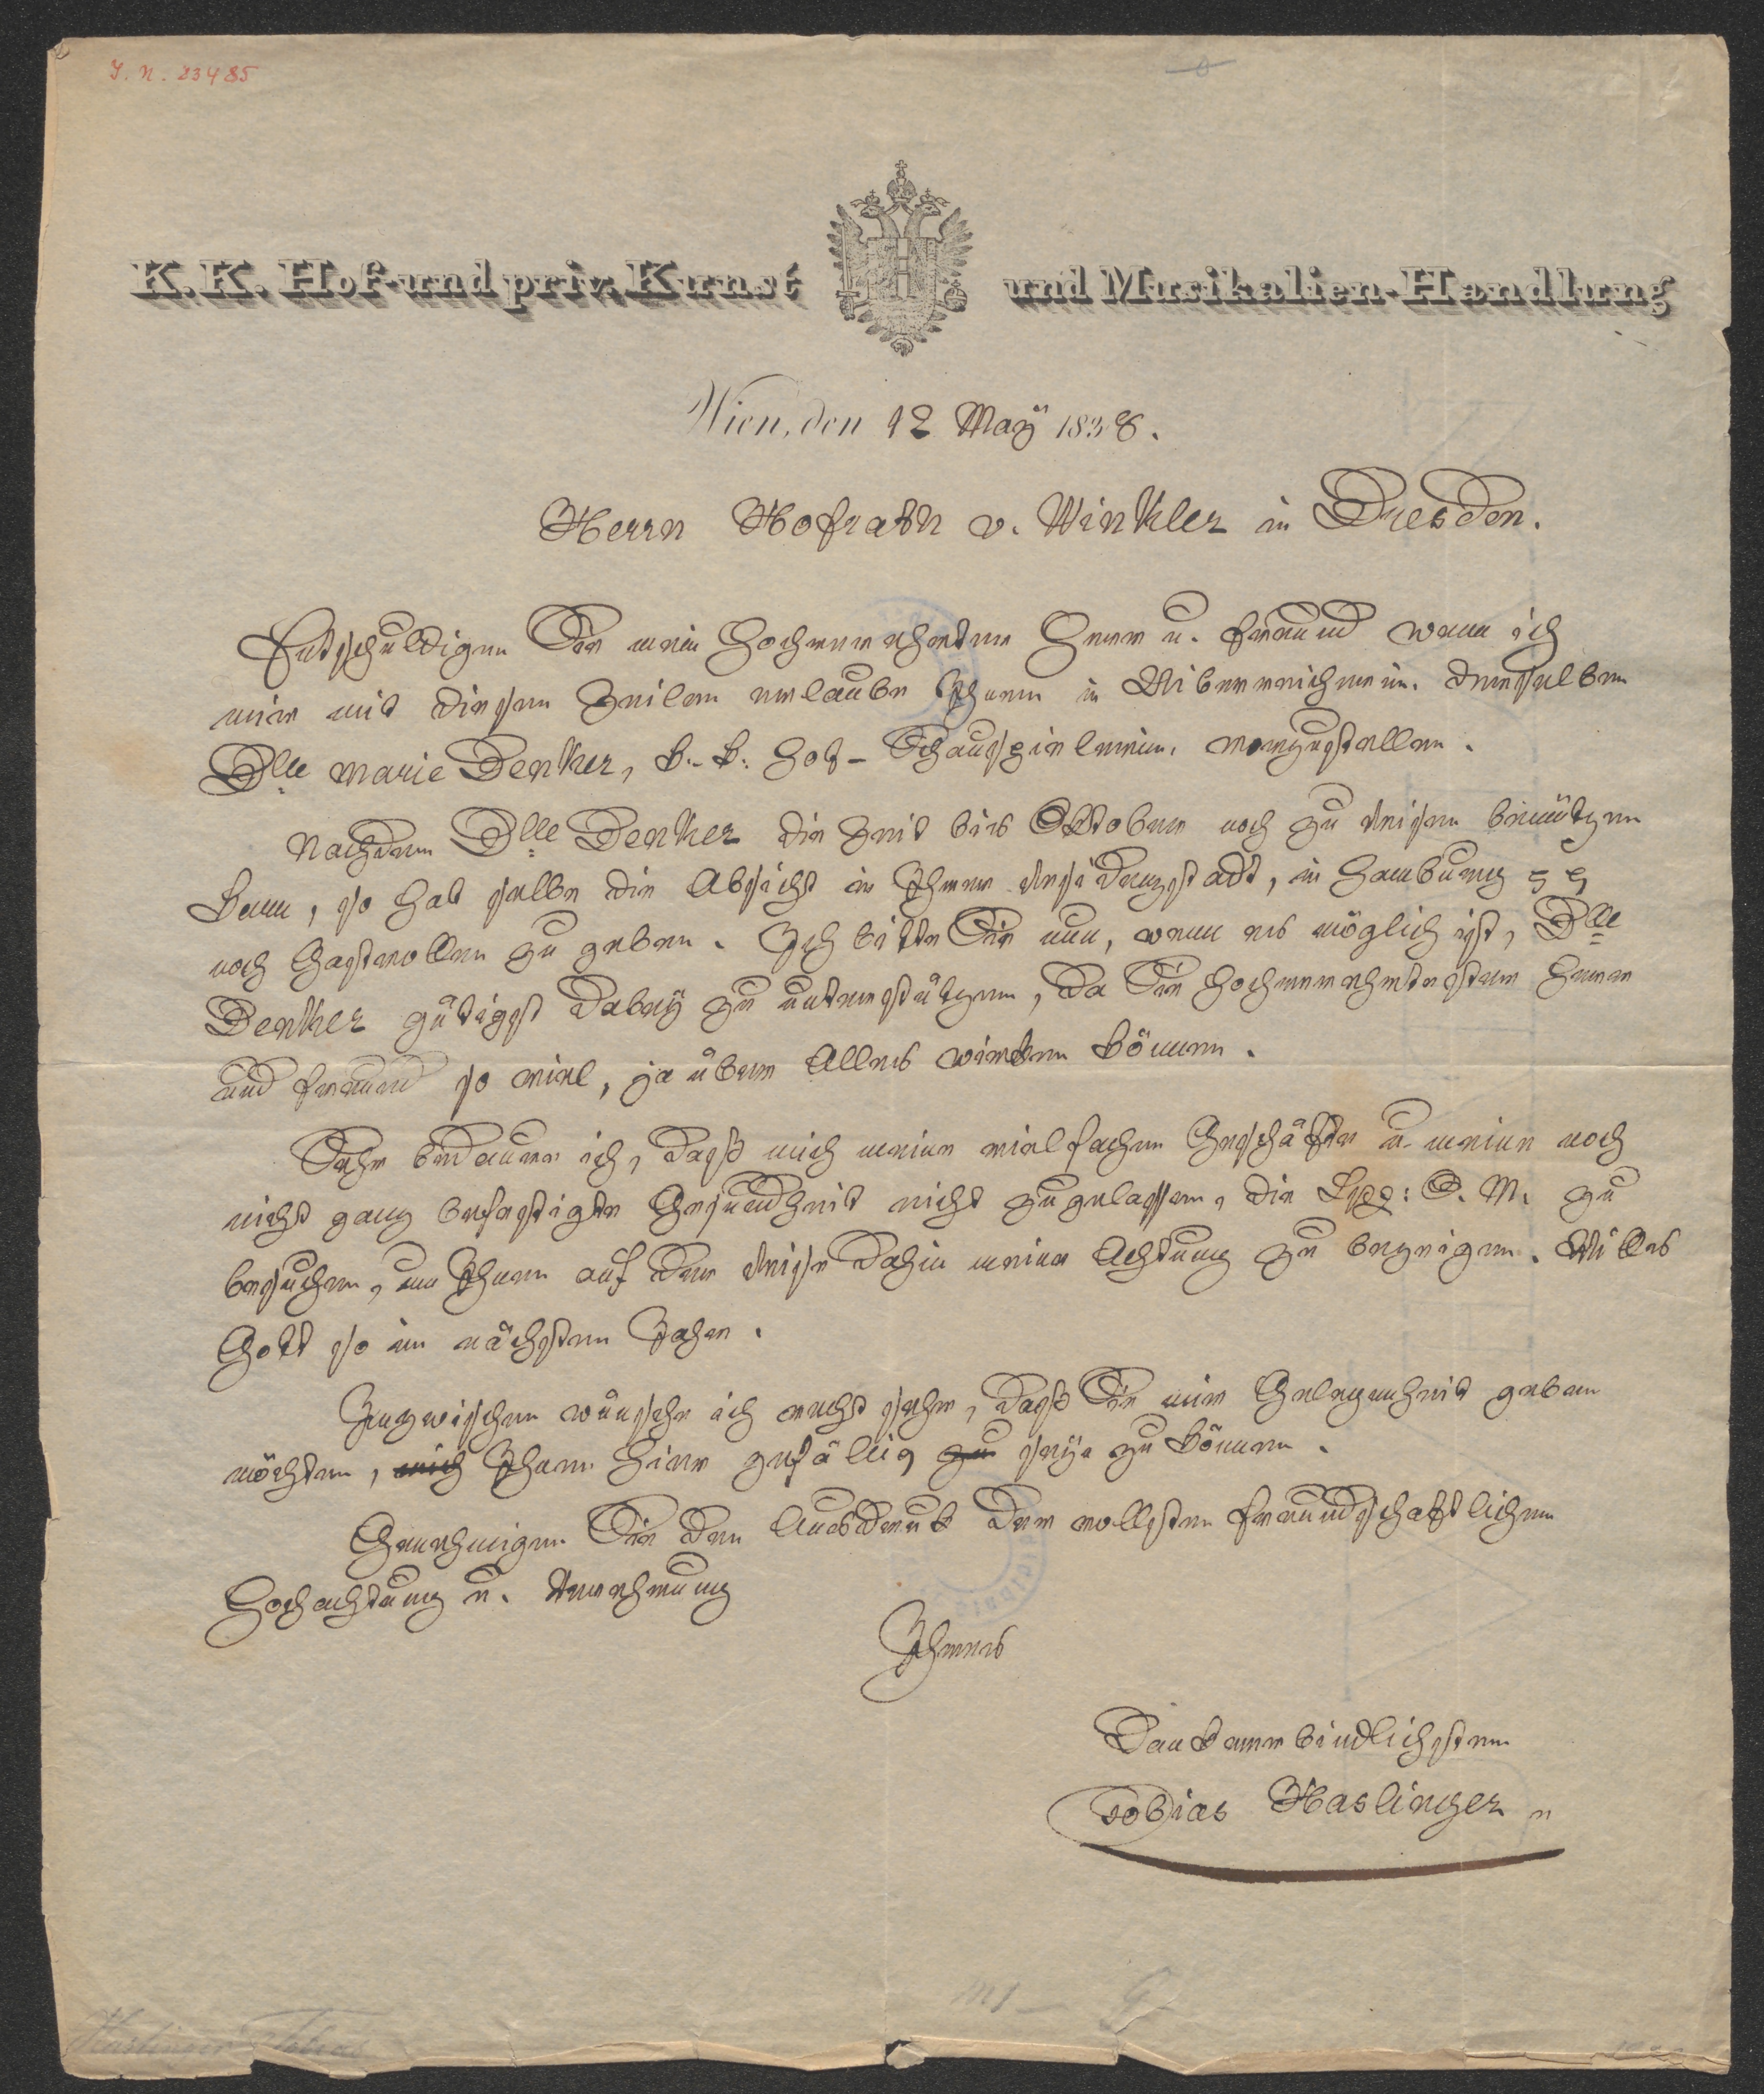 I. N. 23485
K. K. Hof- und priv. Kunst und Musikalien-Handlung
Wien, den 12 Maÿ 1838.
Herrn Hofrath v. Winkler in Dresden.
Entschuldigen Sie mein Hochverehrter Herr u. Freund wenn ich
mir mit diesen Zeilen erlaube Ihnen in Überreicherin derselben
Dlle Marie Denker, k. k. Hof-Schauspielerin, vorzustellen.
Nachdem Dlle Denker die Zeit bis Oktober noch zu Reisen benützen
kann, so hat selbe die Absicht in Ihrer Residenzstadt, in Hamburg
noch Gastrollen zu geben. Ich bitte Sie nun, wenn es möglich ist, Dlle
Denker gütigst dabeÿ zu unterstützen, da Sie Hochverehrtester Herr
und Freund so viel, ja über Alles wirken können.
Sehr bedaure ich, dass mich meine vielfachen Geschäfte u. meine noch
nicht ganz befestigte Gesundheit nicht zugelassen, die Lpzg: O. M. zu
besuchen, um Ihnen auf der Reise dahin meine Achtung zu bezeigen. Will es
Gott so im nächsten Jahr.
Inzwischen wünsche ich recht sehr, dass Sie mir Gelegenheit geben
möchten, mich Ihnen hier gefällig zu seÿn zu können.
Genehmigen Sie den Ausdruck der vollsten freundschaftlichen
Hochachtung u. Verehrung
Ihres
Dankverbindlichsten
Tobias Haslinger
Haslinger Tobias